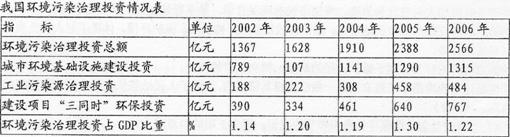 我国环境污染治理投资情况表
指 标 单位 2002年 2003年 2004年 2005年 2006年
环境污染治理投资总额 亿元 1367 1628 1910 2388 2566
城市环境基础设施建设投资 亿元 789 107 1141 1290 1315
工业污染源治理投资 亿元 188 222 308 458 484
建设项目“三同时”环保投资 亿元 390 334 461 640 767
环境污染治理投资占GDP比重 % 1.14 1.20 1.19 1.30 1.22